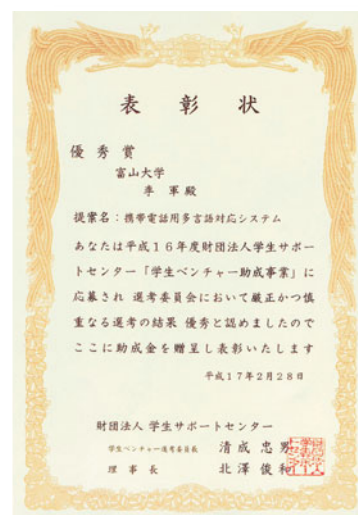 表彰状
優秀賞
富山大学
李 軍 殿
提案名：携帯電話用多言語対応システム
あなたは平成16年度財団法人学生サポー
トセンター「学生ベンチャー助成事業」に
応募され 選考委員会において厳正かつ慎
重なる選考の結果 優秀と認めましたので
ここに助成金を贈呈し表彰いたします
平成17年2月28日
財団法人 学生サポートセンター
学生ベンチャー選考委員長 清成 忠男
理事長 北澤 俊和